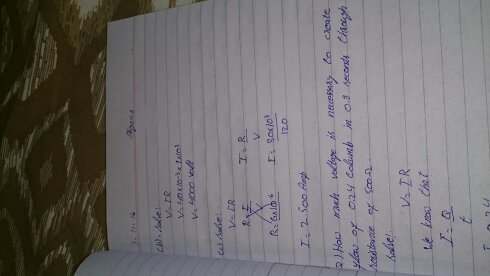 (b) Solve:-
V = IR
V = 40x10^-3 x 1x10^3
V = 4000 Volt
(c) Solve:-
V = IR
I = R
V
I = 30x10^3
120
I = 2500 Amp
2) How much voltage is necessary to create
flow of 0.24 Columb in 0.8 seconds through
resistance of 500Ω.
Solve:
V = IR
We know that
I = Q
t